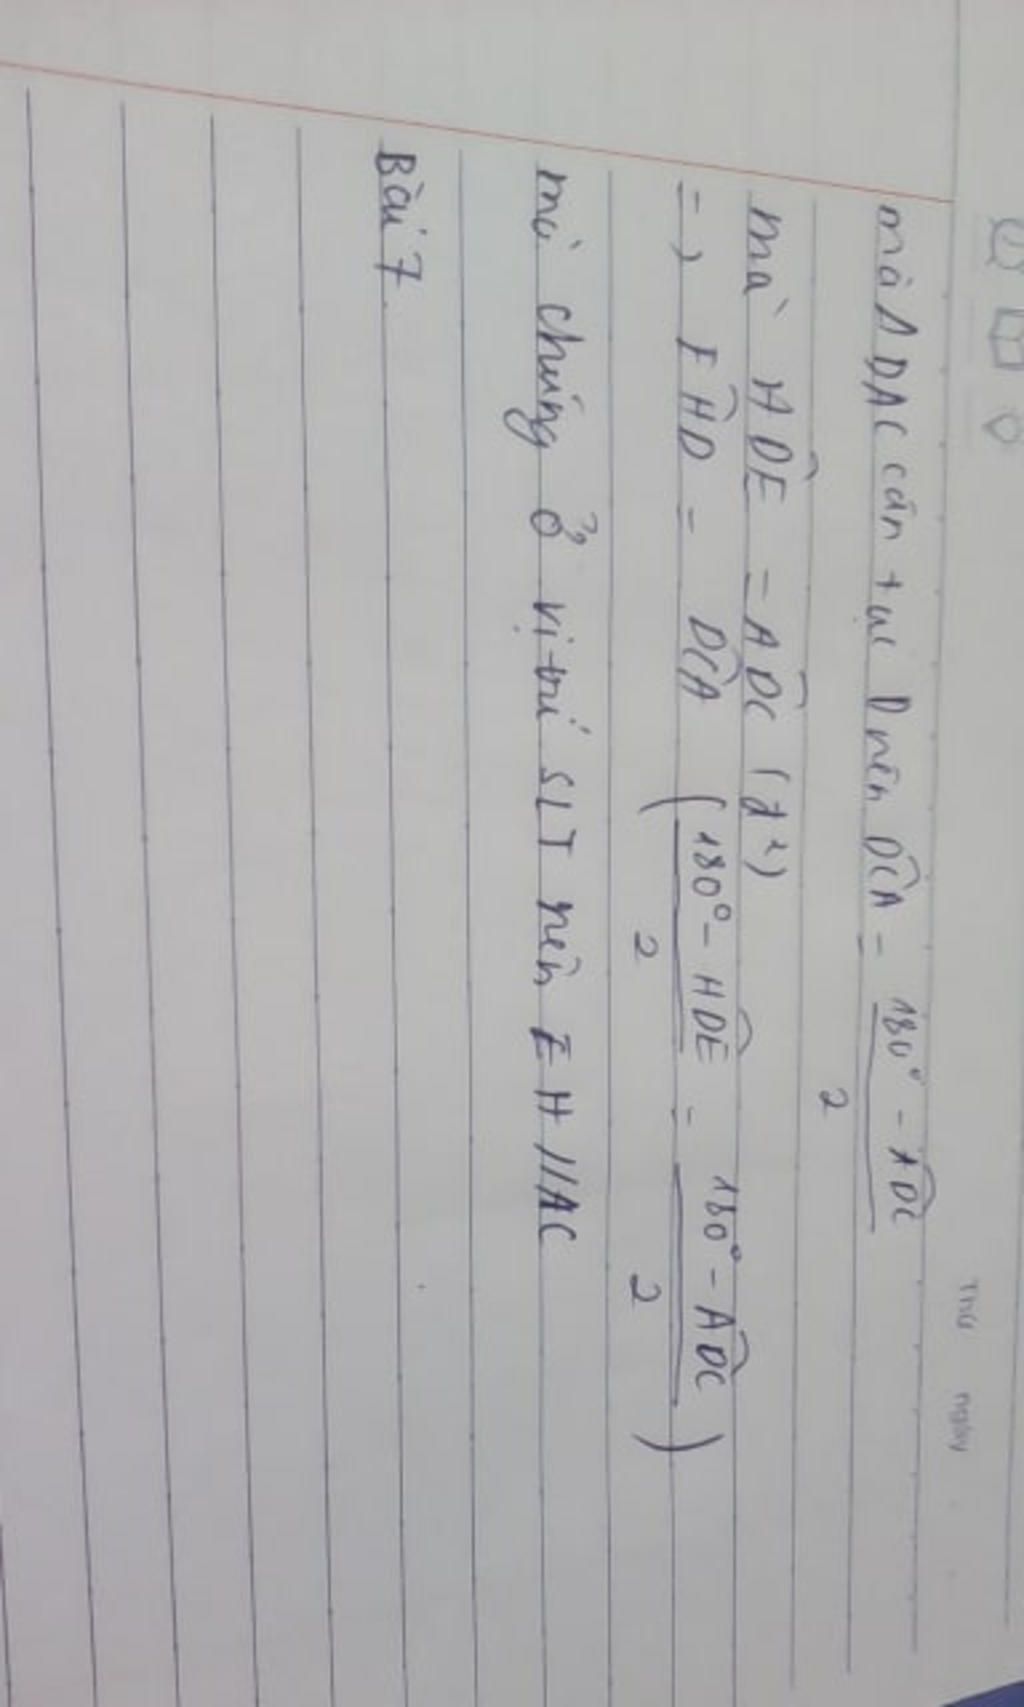 Thứ ngày
mà Δ DAC cân tại D nên D̂CA = (180° - ADC)/2
mà HDE = ADC (đ²)
=> EHD = DCA ( (180° - HDE)/2 = (180° - ADC)/2 )
mà chúng ở vị trí SLT nên EH // AC
Bài 7